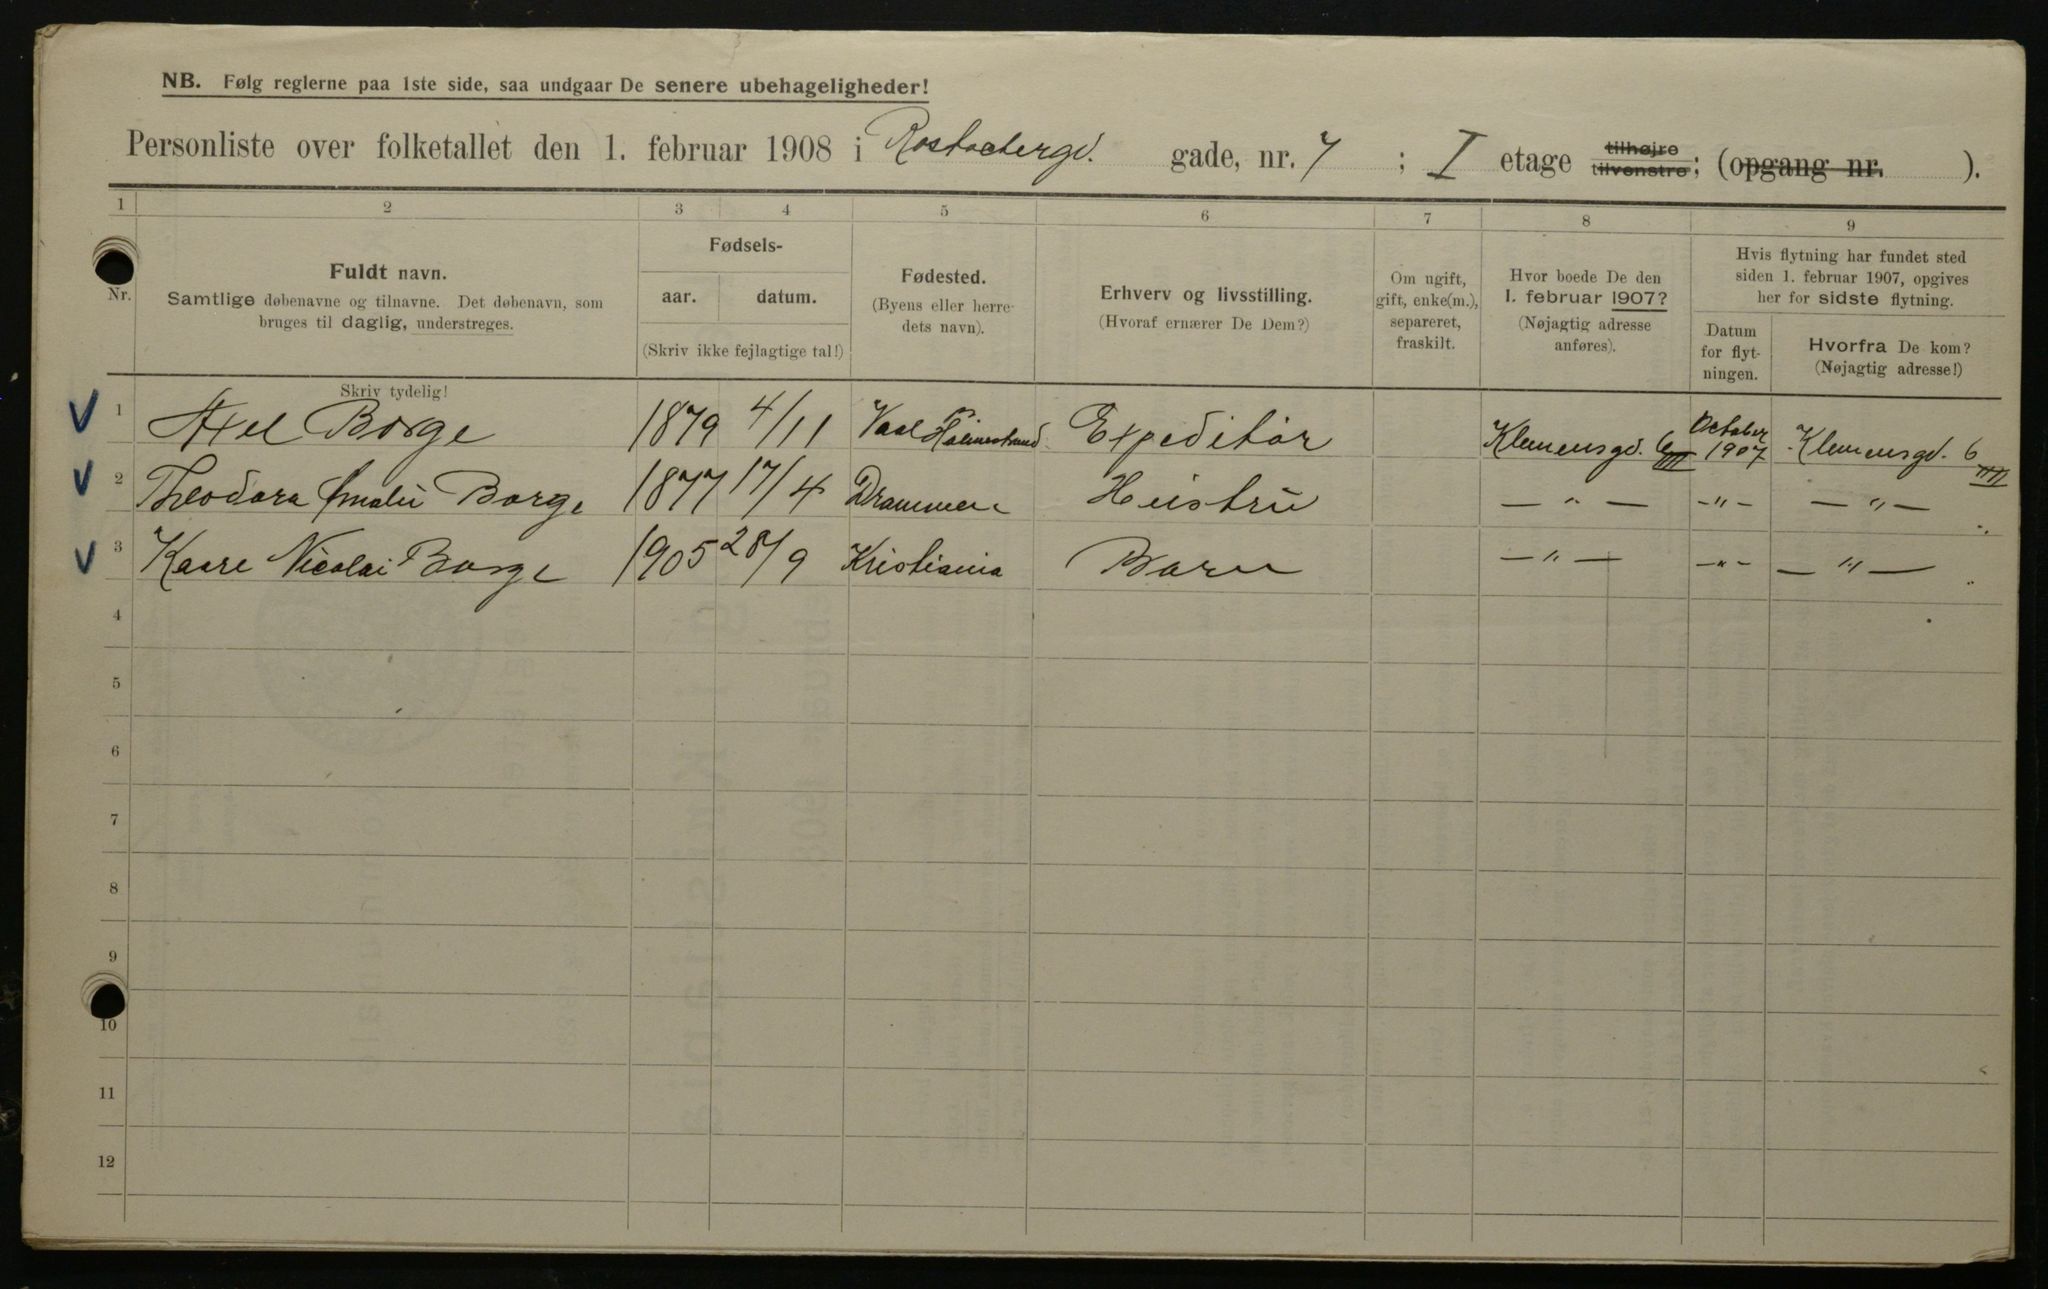 NB. Følg reglerne paa 1ste side, saa undgaar De senere ubehageligheder!
Personliste over folketallet den 1. februar 1908 i Rostockergd. gade, nr. 7 ; I etage tilhøjre tilvenstre; (opgang nr. ).
1 2 3 4 5 6 7 8 9
Nr.
Fuldt navn.
Samtlige døbenavne og tilnavne. Det døbenavn, som
bruges til daglig, understreges.
Skriv tydelig!
Fødsels-
aar. datum.
(Skriv ikke fejlagtige tal!)
Fødested.
(Byens eller herre-
dets navn).
Erhverv og livsstilling.
(Hvoraf ernærer De Dem?)
Om ugift,
gift, enke(m.),
separeret,
fraskilt.
Hvor boede De den
1. februar 1907?
(Nøjagtig adresse
anføres).
Hvis flytning har fundet sted
siden 1. februar 1907, opgives
her for sidste flytning.
Datum
for flyt-
ningen.
Hvorfra De kom?
(Nøjagtig adresse!)
1 Axel Borge 1879 4/11 Holmestrand Expeditør Klemensgd. 6 III October 1907 Klemensgd. 6 III
2 Theodora Amalie Borge 1877 17/4 Drammen Hustru — " — - " - — " —
3 Kaare Nicolai Borge 1905 28/9 Kristiania Barn — " — - " - — " —
4
5
6
7
8
9
10
11
12